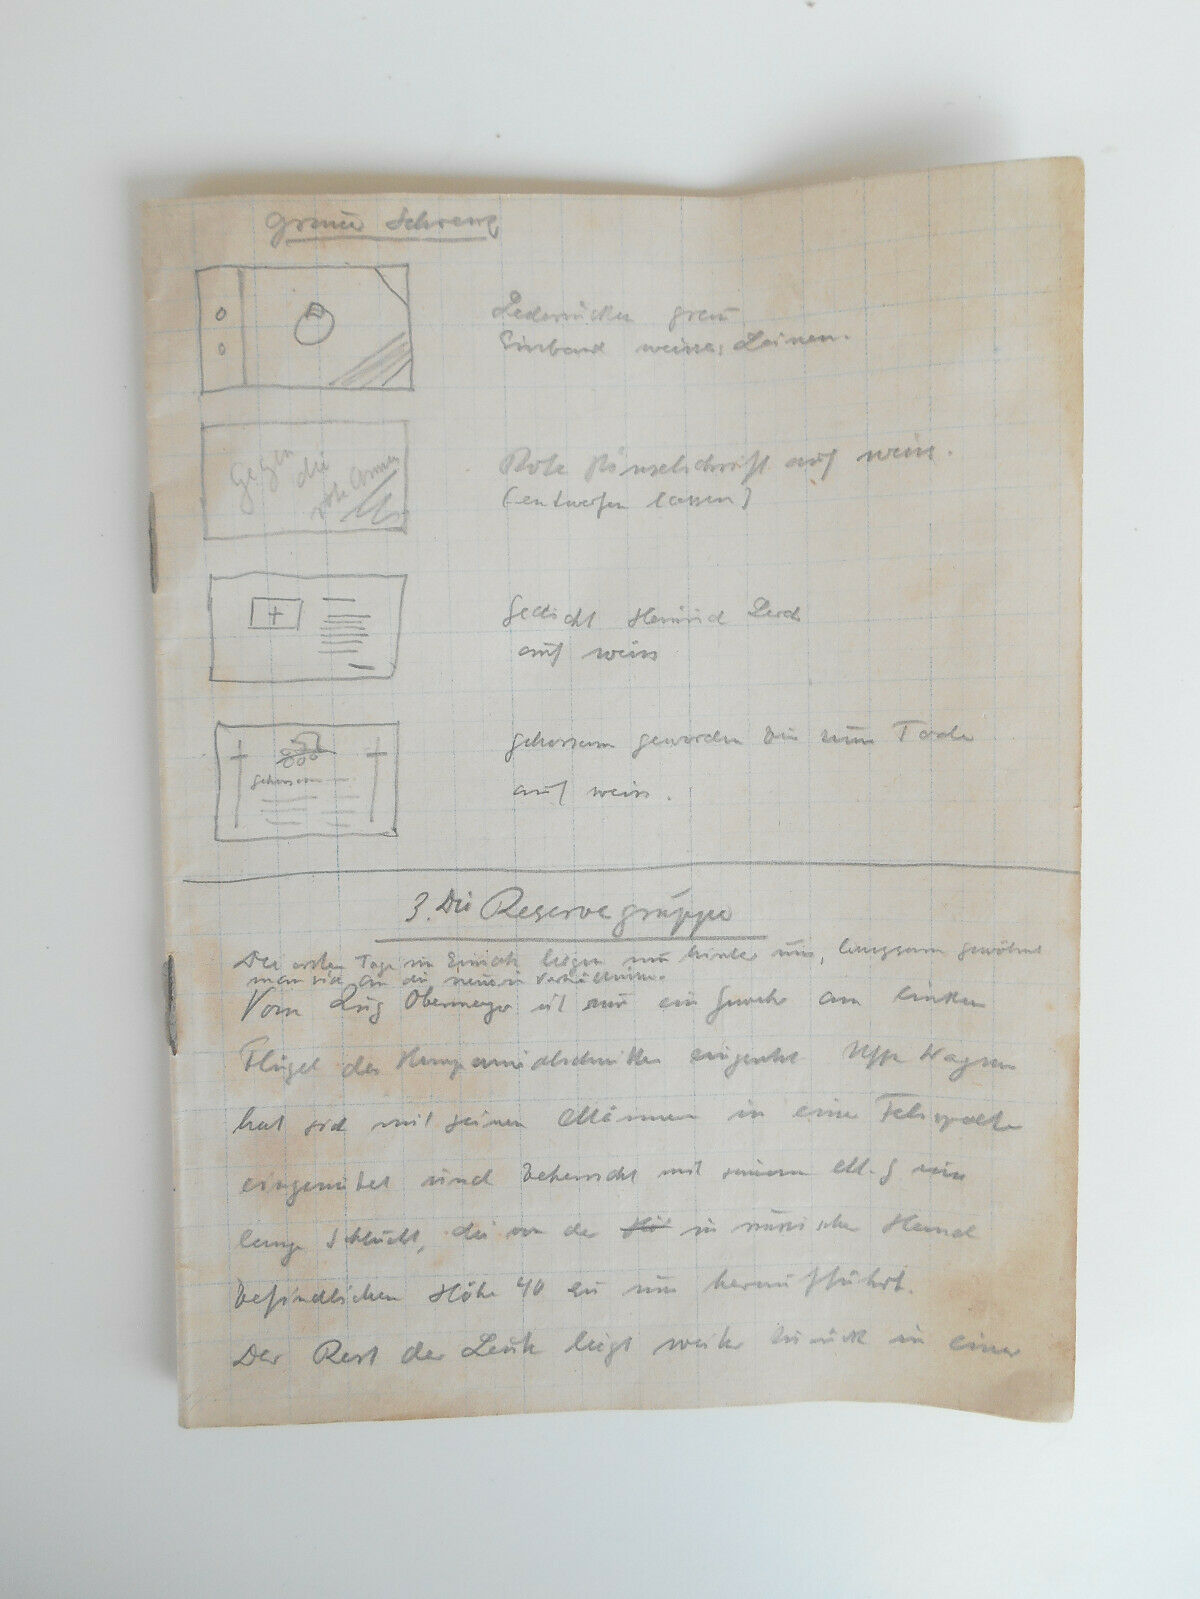 Lederrücken grau
Einband weisses Leinen.
Gegen
die
rote Armee
Rote Pinselschrift auf weiss.
(entwerfen lassen)
Gedicht Heinrich Lersch
auf weiss
gehorsam
gehorsam geworden bis zum Tode
auf weiss.
3. Die Reservegruppe
Die ersten Tage im Einsatz liegen nun hinter uns, langsam gewöhnt
man sich an die neuen Verhältnisse.
Vom Zug Obermeyer ist nur ein Gewehr am linken
Flügel des Kompanieabschnittes eingesetzt. Uffz Wagner
hat sich mit seinen Männern in eine Felsspalte
eingenistet und beherrscht mit seinem M.G eine
lange Schlucht, die von der in russischer Hand
befindlichen Höhe 40 zu uns heraufführt.
Der Rest der Leute liegt weiter zurück in einer